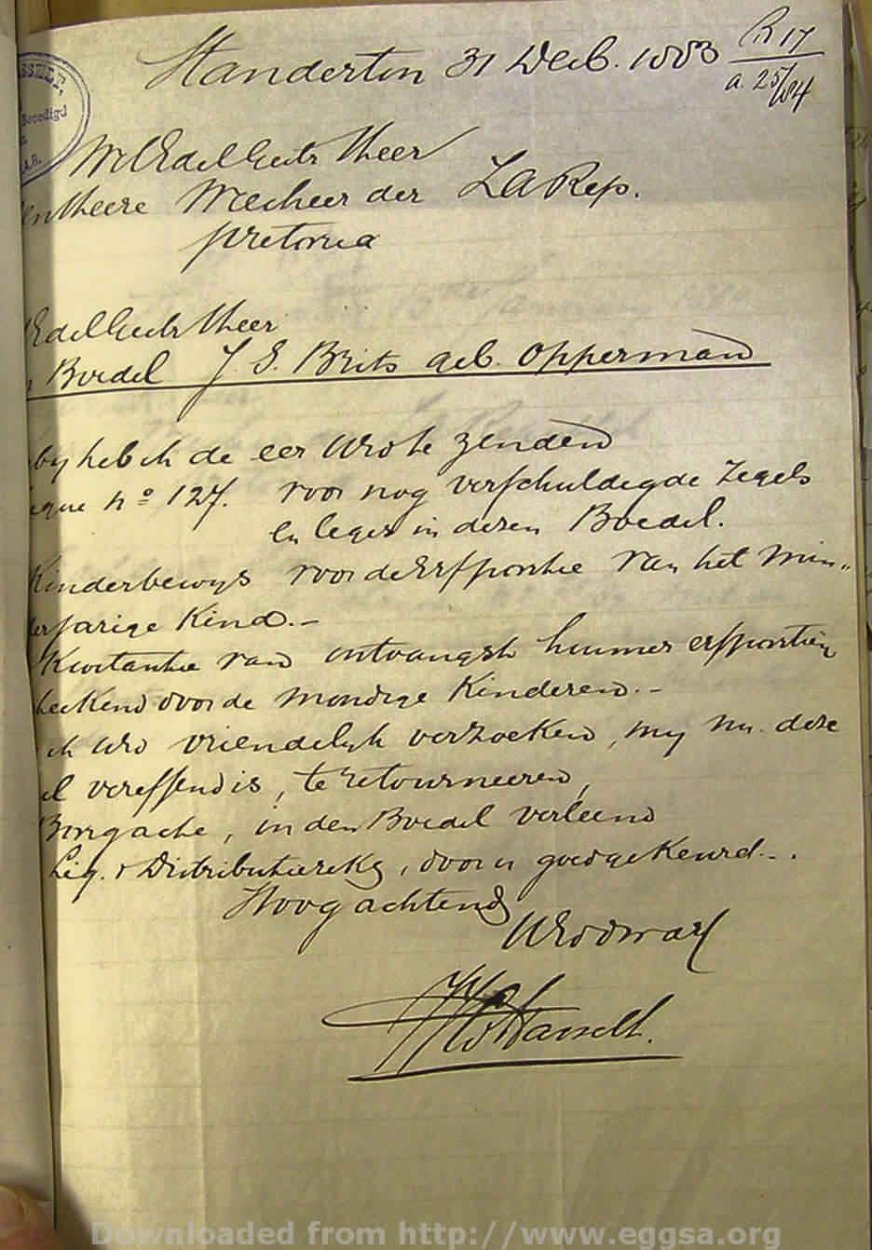 Standerton 31 Decb. 1883
R 17
a. 25/84
Beeedigd
WelEdelGestr Heer
en Heere Weesheer der Z A Rep.
Pretoria
EdelGestr Heer
Boedel J. S. Brits geb. Opperman
by heb ik de eer UEd te zenden
que no 127. voor nog verschuldigde zegels
en leges in dezen Boedel.
Kinderbewys voor de Erfportie van het min-
derjarige Kind.-
Kwitantie van ontvangst hunner erfportien
teekend door de mondige Kinderen.-
ik UEd vriendelyk verzoeken, my nu deze
el vereffend is, te retourneeren,
Borgacte, in den Boedel verleend
Liq. & Distributierekg, door u goedgekeurd.-.
Hoogachtend
UEd dw ar
Hasselt.
Downloaded from http://www.eggsa.org